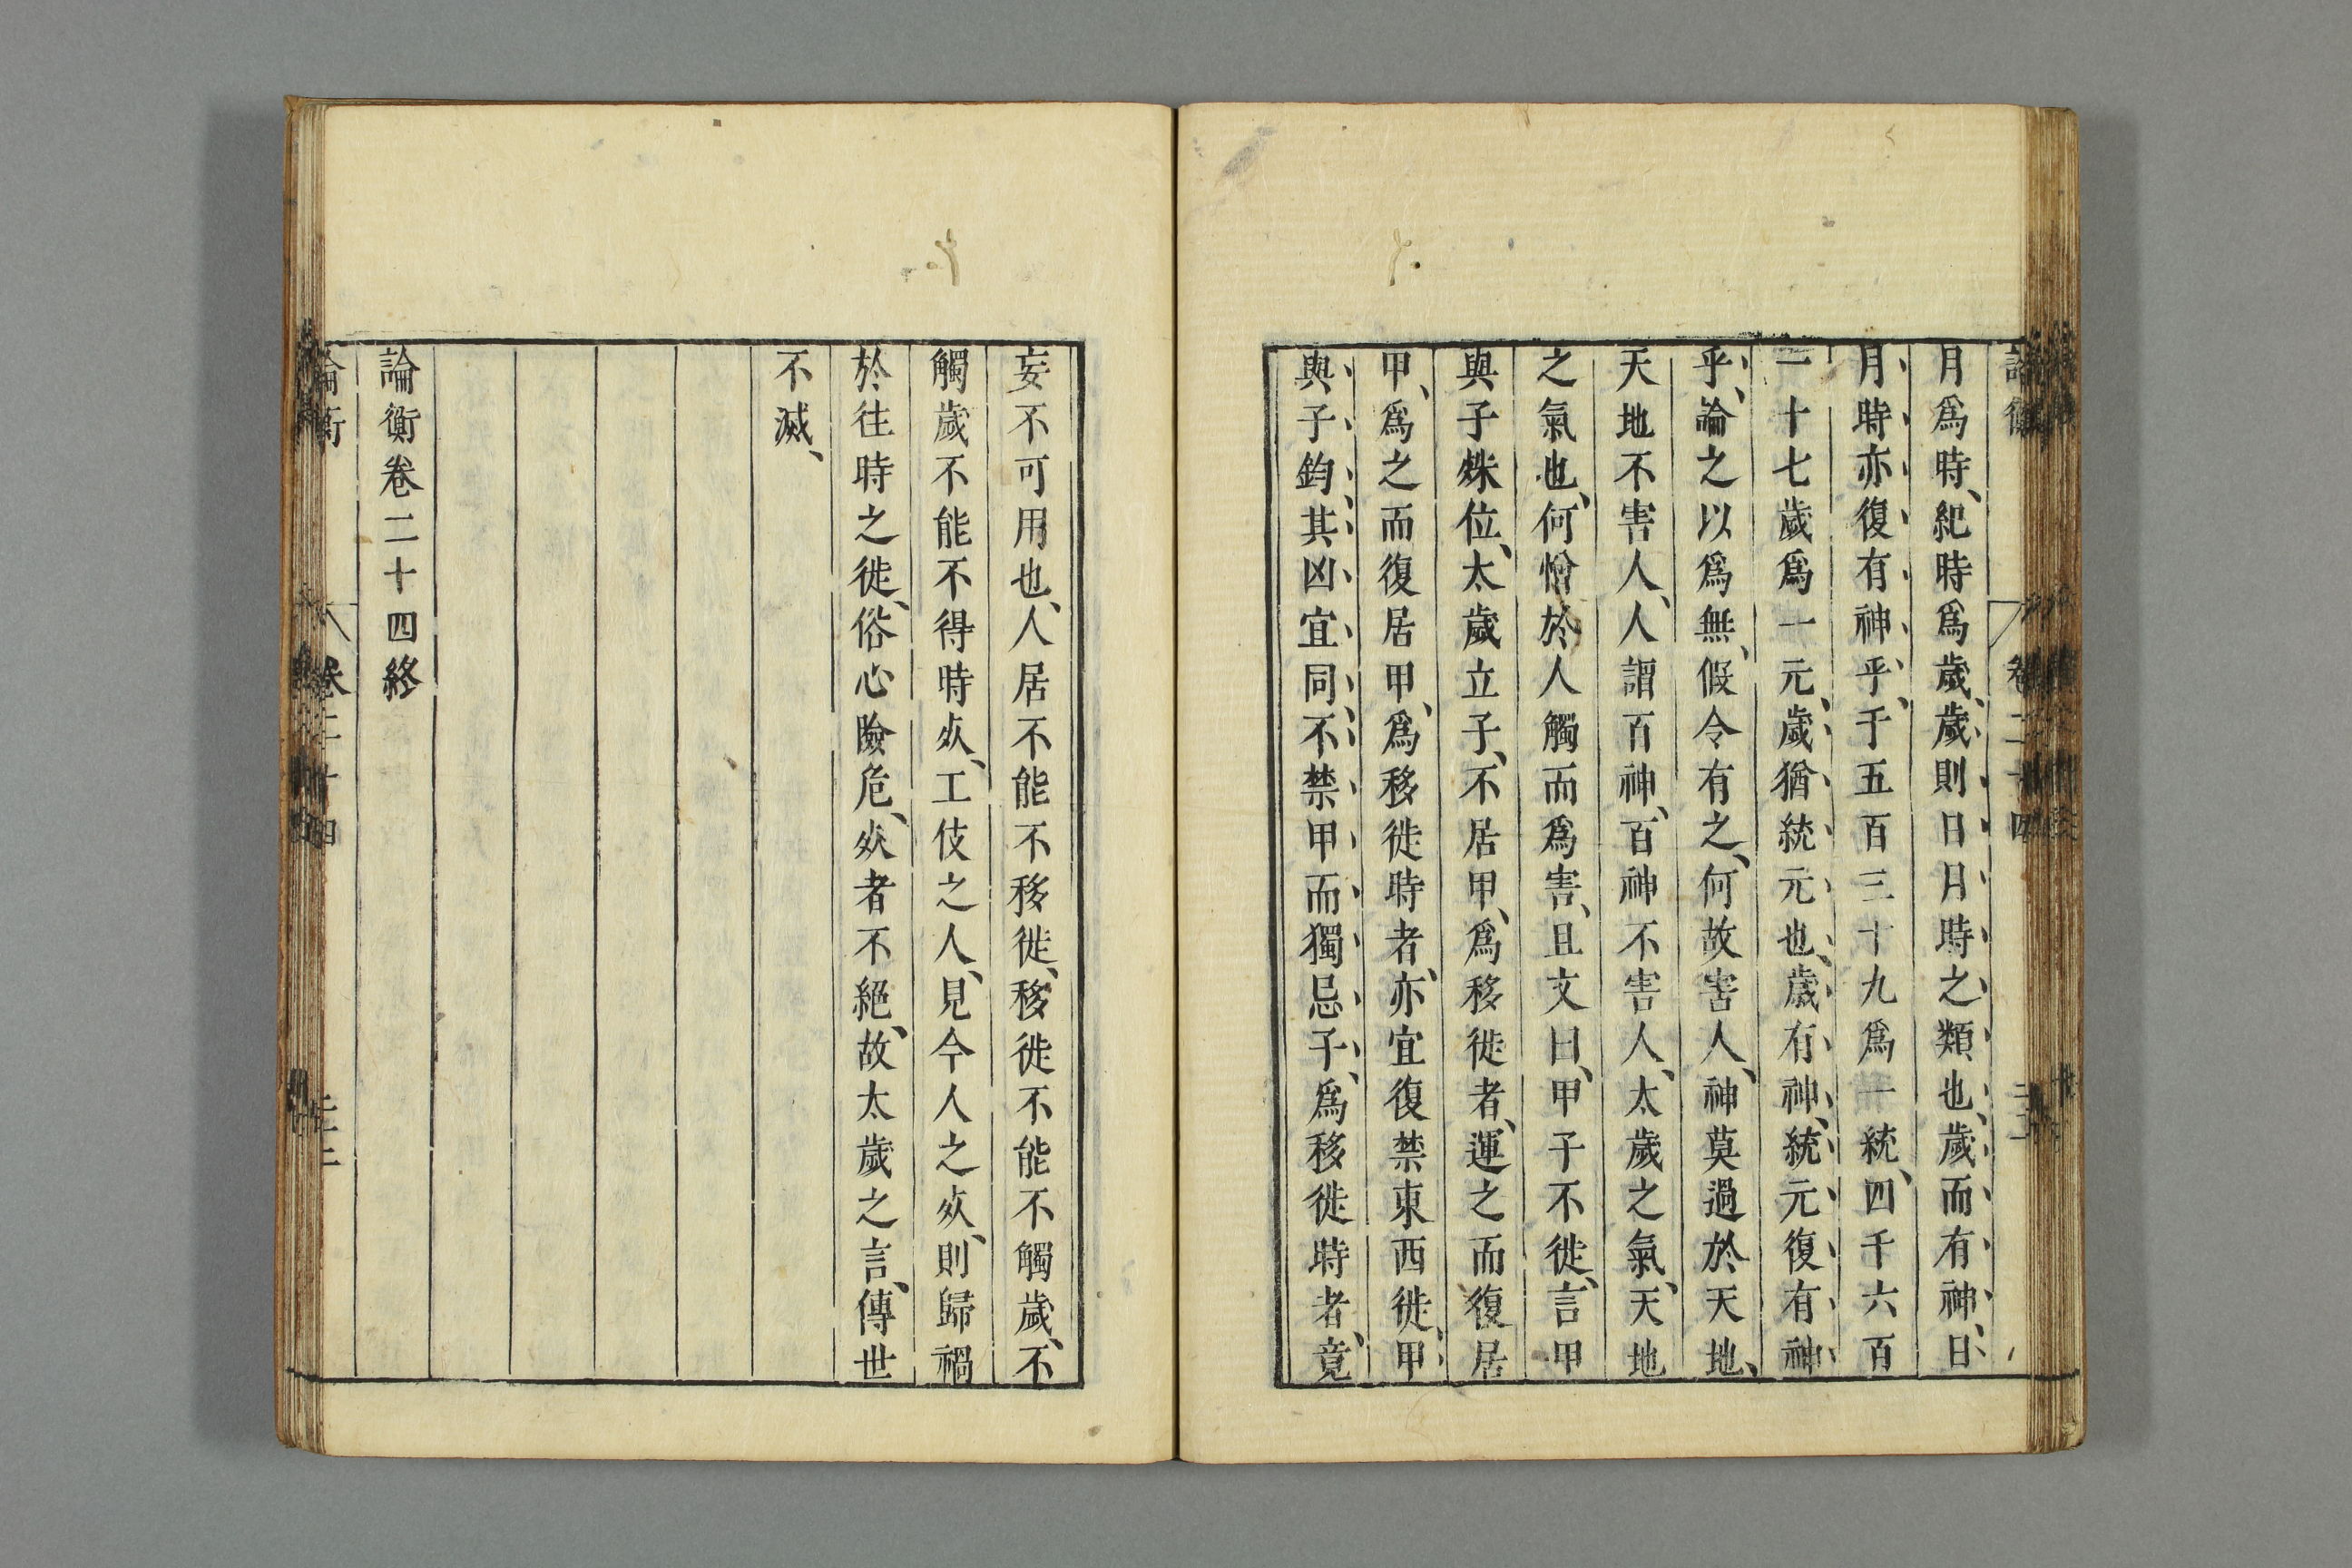 論衡 卷二十四
月爲時、紀時爲歲、歲則日月時之類也、歲而有神、日
月時亦復有神乎、千五百三十九爲一統、四千六百
一十七歲爲一元、歲猶統元也、歲有神、統元復有神
乎、論之以爲無、假令有之、何故害人、神莫過於天地、
天地不害人、人謂百神、百神不害人、太歲之氣、天地
之氣也、何憎於人觸而爲害、且文曰、甲子不徙、言甲
與子殊位、太歲立子、不居甲、爲移徙者、運之而復居
甲、爲之而復居甲、爲移徙時者、亦宜復禁東西徙、甲
與子鈞、其凶宜同、不禁甲而獨忌子、爲移徙時者、竟
妄不可用也、人居不能不移徙、移徙不能不觸歲、不
觸歲不能不得時死、工伎之人、見今人之死、則歸禍
於往時之徙、俗心險危、死者不絕、故太歲之言、傳世
不滅、
論衡卷二十四終
論衡 卷二十四